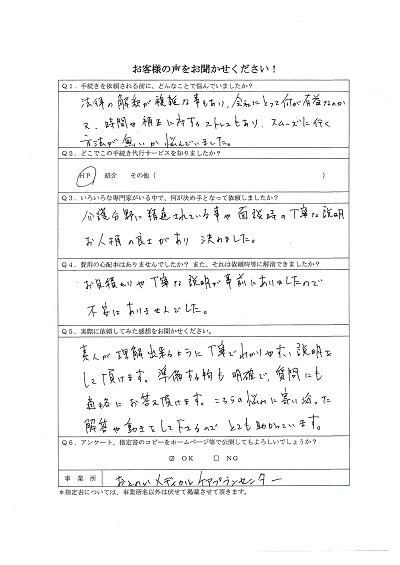 お客様の声をお聞かせください！
Q1．手続きを依頼される前に、どんなことで悩んでいましたか？
法律の解釈が複雑な事もあり、会社にとって何が有益なのか
又、時間や補正に対するストレスもあり、スムーズに行く
方法が無いか悩んでいました。
Q2．どこでこの手続き代行サービスを知りましたか？
HP 紹介 その他（ ）
Q3．いろいろな専門家がいる中で、何が決め手となって依頼しましたか？
介護分野に精通されている事や面談時の丁寧な説明
お人柄の良さがあり 決めました。
Q4．費用の心配事はありませんでしたか？ また、それは依頼時等に解消できましたか？
お見積もりや丁寧な説明が事前にありましたので
不安はありませんでした。
Q5．実際に依頼してみた感想をお聞かせください。
素人が理解出来るように丁寧でわかりやすい説明を
して頂けます。準備する物も明確で、質問にも
適格にお答え頂けます。こちらの悩みに寄り沿った
解答や動きをして下さるので とても助かっています。
Q6．アンケート、指定書のコピーをホームページ等で公開してもよろしいでしょうか？
☑ OK □ NG
事業所 メディカルケアプランセンター
＊指定書については、事業所名以外は伏せて掲載させて頂きます。